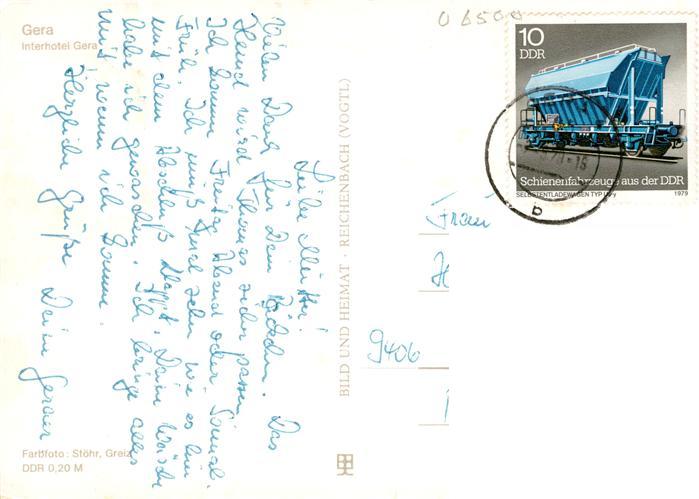 Gera
Interhotel Gera
06500
10
DDR
Schienenfahrzeuge aus der DDR
SELBSTENTLADEWAGEN TYP
1979
b
Liebe Mutter!
Vielen Dank für Dein Päckchen. Das
Hemd wird Thomas sicher passen.
Ich komme Freitag Abend oder Sonnab.
Früh. Ich muß mal sehn wie es hier
mit dem Abschluß klappt. Deine Wäsche
habe ich gewaschen. Ich bringe alles
mit wenn ich komme.
Herzliche Grüße Deine
BILD UND HEIMAT · REICHENBACH (VOGTL)
Frau
9406
Farbfoto: Stöhr, Greiz
DDR 0,20 M